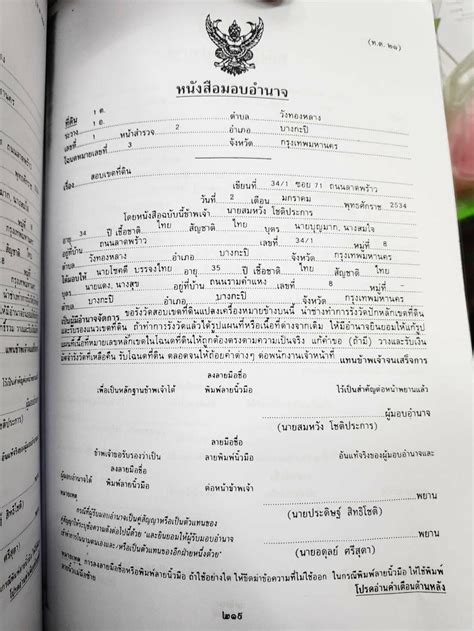 (ท.ด. ๒๑)
หนังสือมอบอำนาจ
ที่ดิน
ระวาง 1 ต. 1 อ. ตำบล วังทองหลาง
เลขที่ 1 หน้าสำรวจ 2 อำเภอ บางกะปิ
โฉนดหมายเลขที่ 3 จังหวัด กรุงเทพมหานคร
เรื่อง สอบเขตที่ดิน
เขียนที่ 34/1 ซอย 71 ถนนลาดพร้าว
วันที่ 2 เดือน มกราคม พุทธศักราช 2534
โดยหนังสือฉบับนี้ข้าพเจ้า นายสมหวัง โชติประการ
อายุ 34 ปี เชื้อชาติ ไทย สัญชาติ ไทย บุตร นายบุญมาก, นางสมใจ
อยู่ที่บ้าน ถนนลาดพร้าว เลขที่ 34/1 หมู่ที่ 8
ตำบล วังทองหลาง อำเภอ บางกะปิ จังหวัด กรุงเทพมหานคร
ได้มอบให้ นายโชคดี บรรจงไทย อายุ 35 ปี เชื้อชาติ ไทย สัญชาติ ไทย
บุตร นายแดง, นางสุข อยู่ที่บ้าน ถนนรามคำแหง
เลขที่ 8 หมู่ที่ 8 ตำบล บางกะปิ อำเภอ บางกะปิ จังหวัด กรุงเทพมหานคร
เป็นผู้มีอำนาจจัดการ ขอรังวัดสอบเขตที่ดินแปลงเครื่องหมายข้างบนนี้ นำช่างทำการรังวัดปักหลักเขตที่ดิน
และรับรองแนวเขตที่ดิน ถ้าทำการรังวัดแล้วได้รูปแผนที่หรือเนื้อที่ต่างจากเดิม ให้มีอำนาจยินยอมให้แก้รูป
แผนที่เนื้อที่และหมายเลขหลักเขตในโฉนดที่ดินให้ถูกต้องตรงตามความเป็นจริง แก้คำขอ (ถ้ามี) วางและรับเงิน
มัดจำรังวัดที่เหลือคืน รับโฉนดที่ดิน ตลอดจนให้ถ้อยคำต่างๆ ต่อพนักงานเจ้าหน้าที่ แทนข้าพเจ้าจนเสร็จการ
เพื่อเป็นหลักฐานข้าพเจ้าได้ ลงลายมือชื่อ พิมพ์ลายนิ้วมือ ไว้เป็นสำคัญต่อหน้าพยานแล้ว
ผู้มอบอำนาจ
(นายสมหวัง โชติประการ)
ข้าพเจ้าขอรับรองว่าเป็น ลายมือชื่อ ลายพิมพ์นิ้วมือ อันแท้จริงของผู้มอบอำนาจและ
ผู้มอบอำนาจได้ ลงลายมือชื่อ พิมพ์ลายนิ้วมือ ต่อหน้าข้าพเจ้า
พยาน
(นายประดิษฐ์ สิทธิโชติ)
พยาน
(นายอดุลย์ ศรีสุดา)
หมายเหตุ
กรณีที่ผู้รับมอบอำนาจเป็นคู่สัญญาหรือเป็นตัวแทนของ
คู่สัญญาให้ระบุข้อความดังต่อไปนี้ด้วย "และยินยอมให้ผู้รับมอบอำนาจ
เข้าทำการในนามตนเองและ/หรือเป็นตัวแทนของอีกฝ่ายหนึ่งด้วย"
หมายเหตุ การลงลายมือชื่อหรือพิมพ์ลายนิ้วมือ ถ้าใช้อย่างใด ให้ขีดฆ่าข้อความที่ไม่ใช้ออก ในกรณีพิมพ์ลายนิ้วมือ ให้ใช้พิมพ์
ลายนิ้วแม่มือซ้าย
โปรดอ่านคำเตือนด้านหลัง
๒๑๕